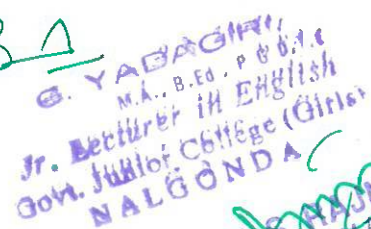 G. YADAGIRI,
M.A., B.Ed., P G D.T.E
Jr. Lecturer in English
Govt. Junior College (Girls)
NALGONDA